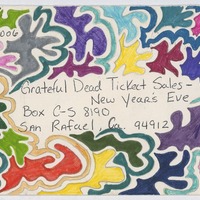 006
Grateful Dead Ticket Sales -
New Year's Eve
Box C-S 8190
San Rafael, Ca. 94912